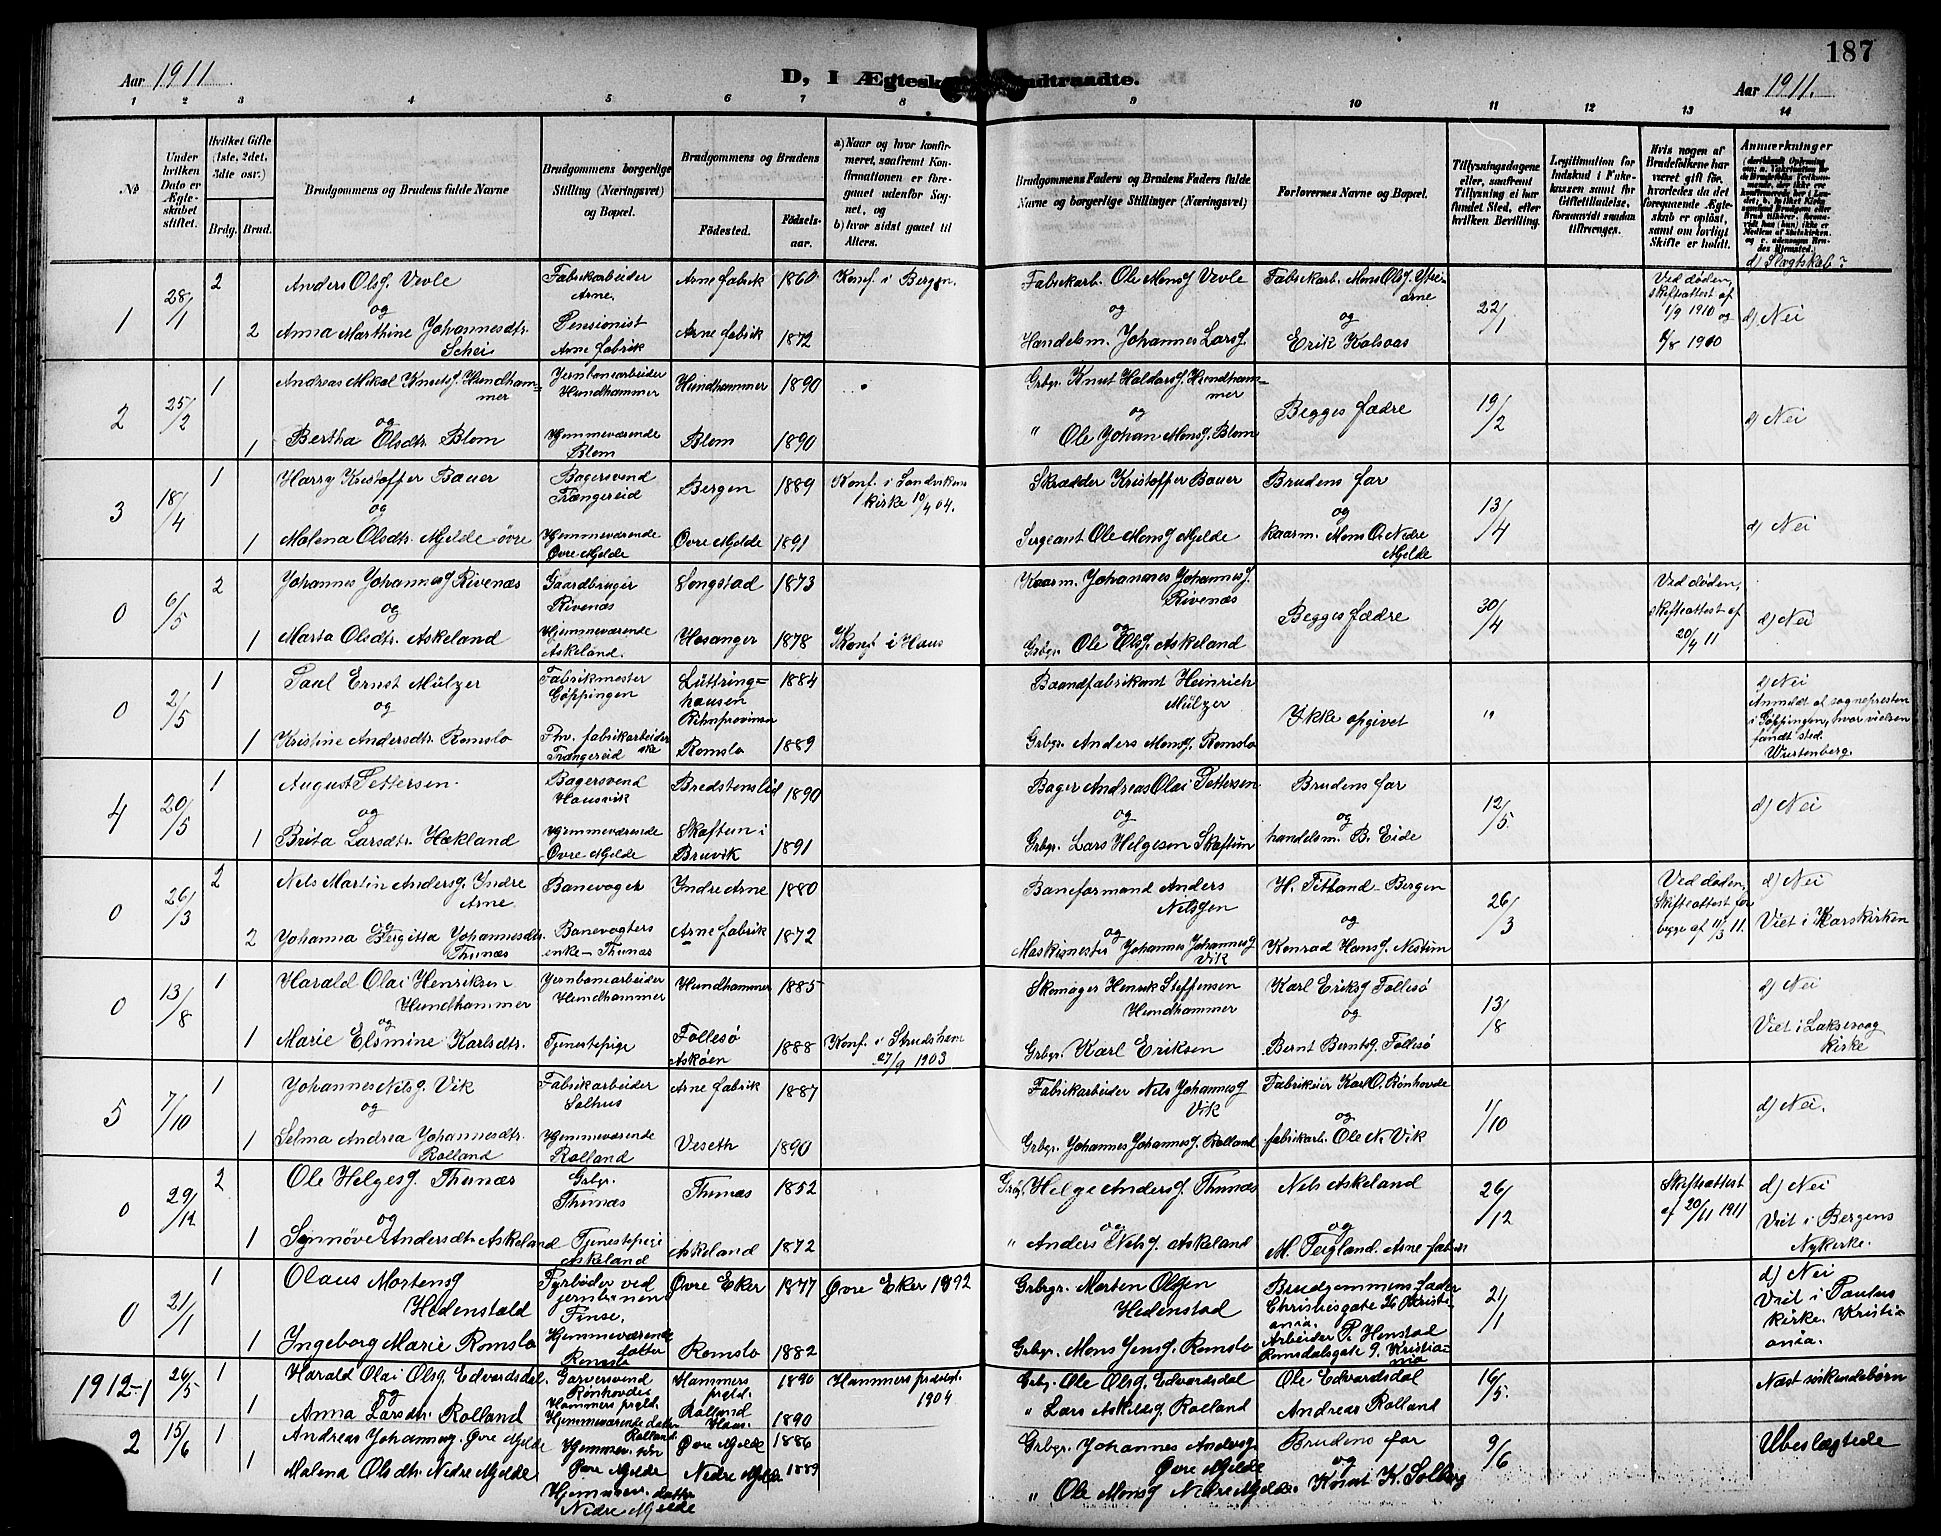 187
Aar 1911
D, I Ægtesk ndtraadte.
Aar 1911.
1 2 3 4 5 6 7 8 9 10 11 12 13 14
No
Under hvilken Dato er Ægteskabet stiftet.
Hvilket Gifte (1ste, 2det, 3dte osv.)
Brdg. Brud.
Brudgommens og Brudens fulde Navne
Brudgommens borgerlige Stilling (Næringsvei) og Bopæl.
Brudgommens og Brudens
Fødested.
Fødselsaar.
a) Naar og hvor konfirmeret, saafremt Konfirmationen er foregaaet udenfor Sognet, og
b) hvor sidst gaaet til Alters.
Brudgommens Faders og Brudens Faders fulde Navne og borgerlige Stillinger (Næringsvei)
Forlovernes Navne og Bopæl.
Tillysningsdagene eller, saafremt Tillysning ei har fundet Sted, efter hvilken Bevilling.
Legitimation for Indskud i Enkekassen samt for Giftetilladelse, forsaavidt saadan tiltrænges.
Hvis nogen af Brudefolkene har været gift før, hvorledes da det foregaaende Ægteskab er opløst, samt om lovligt Skifte er holdt.
Anmærkninger
d) Slægtskab?
1 28/1 2 Anders Olsg. Vevle Fabrikarbeider Arne. Arne fabrik 1860 Konf. i Bergen. Fabrikarb. Ole Monsg Vevle Fabrikarb. Mons Olsg. Ytre-arne 22/1 Ved døden, skifteattest af 1/9 1910 og d) Nei
og
2 Anna Marthine Johannesdtr. Schei Pensionist Arne fabrik Arne fabrik 1872 Handelsm. Johannes Larsg. Erik Kalsaas
2 25/2 1 Andreas Mikal Knutsg. Hundhammer Jernbanearbeider Hundhammer Hundhammer 1890 Grbgr. Knut Haldorsg. Hundhammer Begges fædre 19/2 d) Nei
og
1 Bertha Olsdtr. Blom Hjemmeværende Blom Blom 1890 " Ole Johan Monsg. Blom
3 18/4 1 Harry Kristoffer Bauer Bagersvend Trængereid Bergen 1889 Konf. i Sandvikens kirke 10/4 04. Skrædder Kristoffer Bauer Brudens far 13/4 d) Nei
og
1 Malena Olsdtr. Mjelde øvre Hjemmeværende Øvre Mjelde Øvre Mjelde 1891 Sergeant Ole Monsg Mjelde kaarm. Mons O. Nedre Mjelde
0 6/5 2 Johannes Johannesg Rivenæs Gaardbruger Rivenæs Songstad 1873 Kaarm. Johannes Johannesg. Rivenæs Begges fædre 30/4 Ved døden, skifteattest af 20/4 11 d) Nei
og
1 Marta Olsdtr. Askeland Hjemmeværende Askeland. Hosanger 1878 Konf i Haus Grbgr. Ole Olsg. Askeland
0 2/5 1 Paul Ernst Mülzer Fabrikmester Göppingen Lüttringhausen Rihnprovinsen 1884 Baandfabrikant Heinrich Mülzer Ikke opgivet " d) Nei
Anmeldt af sognepresten i Göppingen, hvor vielsen fandt sted. Wurtenberg.
og
1 Kristine Andersdtr. Romslo Fhv. fabrikarbeiderske Trængereid Romslo 1889 Grbgr. Anders Monsg. Romslo
4 20/5 1 August Pettersen. Bagersvend Hausvik 1890 Bager Andreas Olai Pettersen Brudens far 12/5 d) Nei
og
1 Brita Larsdtr. Hækland Hjemmeværende Øvre Mjelde Skaftun i Bruvik 1891 Grbgr. Lars Helgesen Skaftun handelsm. B. Eide
0 26/3 2 Nels Martin Andersg. Indre Arne Banevogter Indre Arne 1880 Baneformand Anders Nelsgen H. Titland - Bergen 26/3 Ved døden, Skifteattest for begge af 11/3 11. d) Nei
Viet i Korskirken
og
2 Johanna Bergitta Johannesdtr. Thunæs Banevogters enke - Thunæs Arne fabrik 1872 Maskinmester Johannes Johannesg Vik Konrad Hansg. Nestun
0 13/8 1 Harald Olai Henriksen Hundhammer Jernbanearbeider Hundhammer Hundhammer 1885 Skomager Henrik Steffensen Hundhammer Karl Eriksg Follesø 13/8 d) Nei
Viet i Laksevaag kirke
og
1 Marie Elsmine Karlsdtr. Tjenestepige Follesø Askøen 1888 Konf. i Strudsham 27/9 1903 Grbgr. Karl Eriksen Bernt Berntsg. Follesø
5 7/10 1 Johannes Nilsg. Vik Fabrikarbeider Salhus Arne fabrik 1887 Fabrikarbeider Nels Johannesg Vik Fabrikeier Karl O. Rønhovde 1/10 d) Nei.
og
1 Selma Andrea Johannesdtr. Rolland Hjemmeværende Rolland Veseth 1890 Grbgr. Johannes Johannesg. Rolland fabrikarb. Ole N. Vik
0 29/12 2 Ole Helgesg. Thunæs Grbgr. Thunæs Thunæs 1852 Grbgr. Helge Andersg. Thunæs Nels Askeland 26/12 Skifteattest af 20/11 1911 d) Nei
Viet i Bergens Nykirke.
og
1 Synnøve Andersdtr. Askeland Tjenestepige Askeland Askeland 1872 " Anders Nelsg. Askeland M. Teigland. Arne fabrik
0 21/1 1 Olaus Mortensg Hedenstad Fyrbøder ved jernbanen Finse. Øvre Eker 1877 Øvre Eker 1892 Grbgr. Morten Olsen Hedenstad Brudgommens fader Christiesgate 26 Kristiania. 21/1 d) Nei
Viet i Paulus kirke. Kristiania.
1 Ingeborg Marie Romslo Hjemmeværende datter Romslo Romslo 1882 Grbgr. Mons Jensg. Romslo Arbeider P. Henstad Romsdalsgate 9. Kristiania
1912-1 26/5 1 Harald Olai Olsg. Edvardsdal. Garversvend Rønhovde Hammers prgld. Hammers prgld. 1890 Hammers præstegl. 1904 Grbg. Ole Olsg. Edvardsdal Ole Edvardsdal 16/5. Næst søskendebørn
og
1 Anna Larsdtr. Rolland Hjemmeværende datter Rolland. Rolland Haus. 1890 " Lars Askildsg. Rolland Andreas Rolland
2 15/6 1 Andreas Johannesg. Øvre Mjelde Hjemmev. søn Øvre Mjelde Øvre Mjelde 1886 Grbgr. Johannes Andersg Øvre Mjelde Brudens far 9/6 Ubeslægtede
og
1 Malena Olsdtr. Nedre Mjelde. Hjemmev. datter Nedre Mjelde Nedre Mjelde 1889 " Ole Monsg Nedre Mjelde. Knut K. Solberg